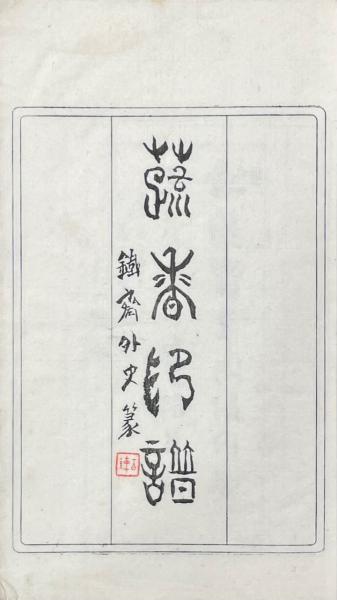 蔬香印譜
鐵齋外史篆